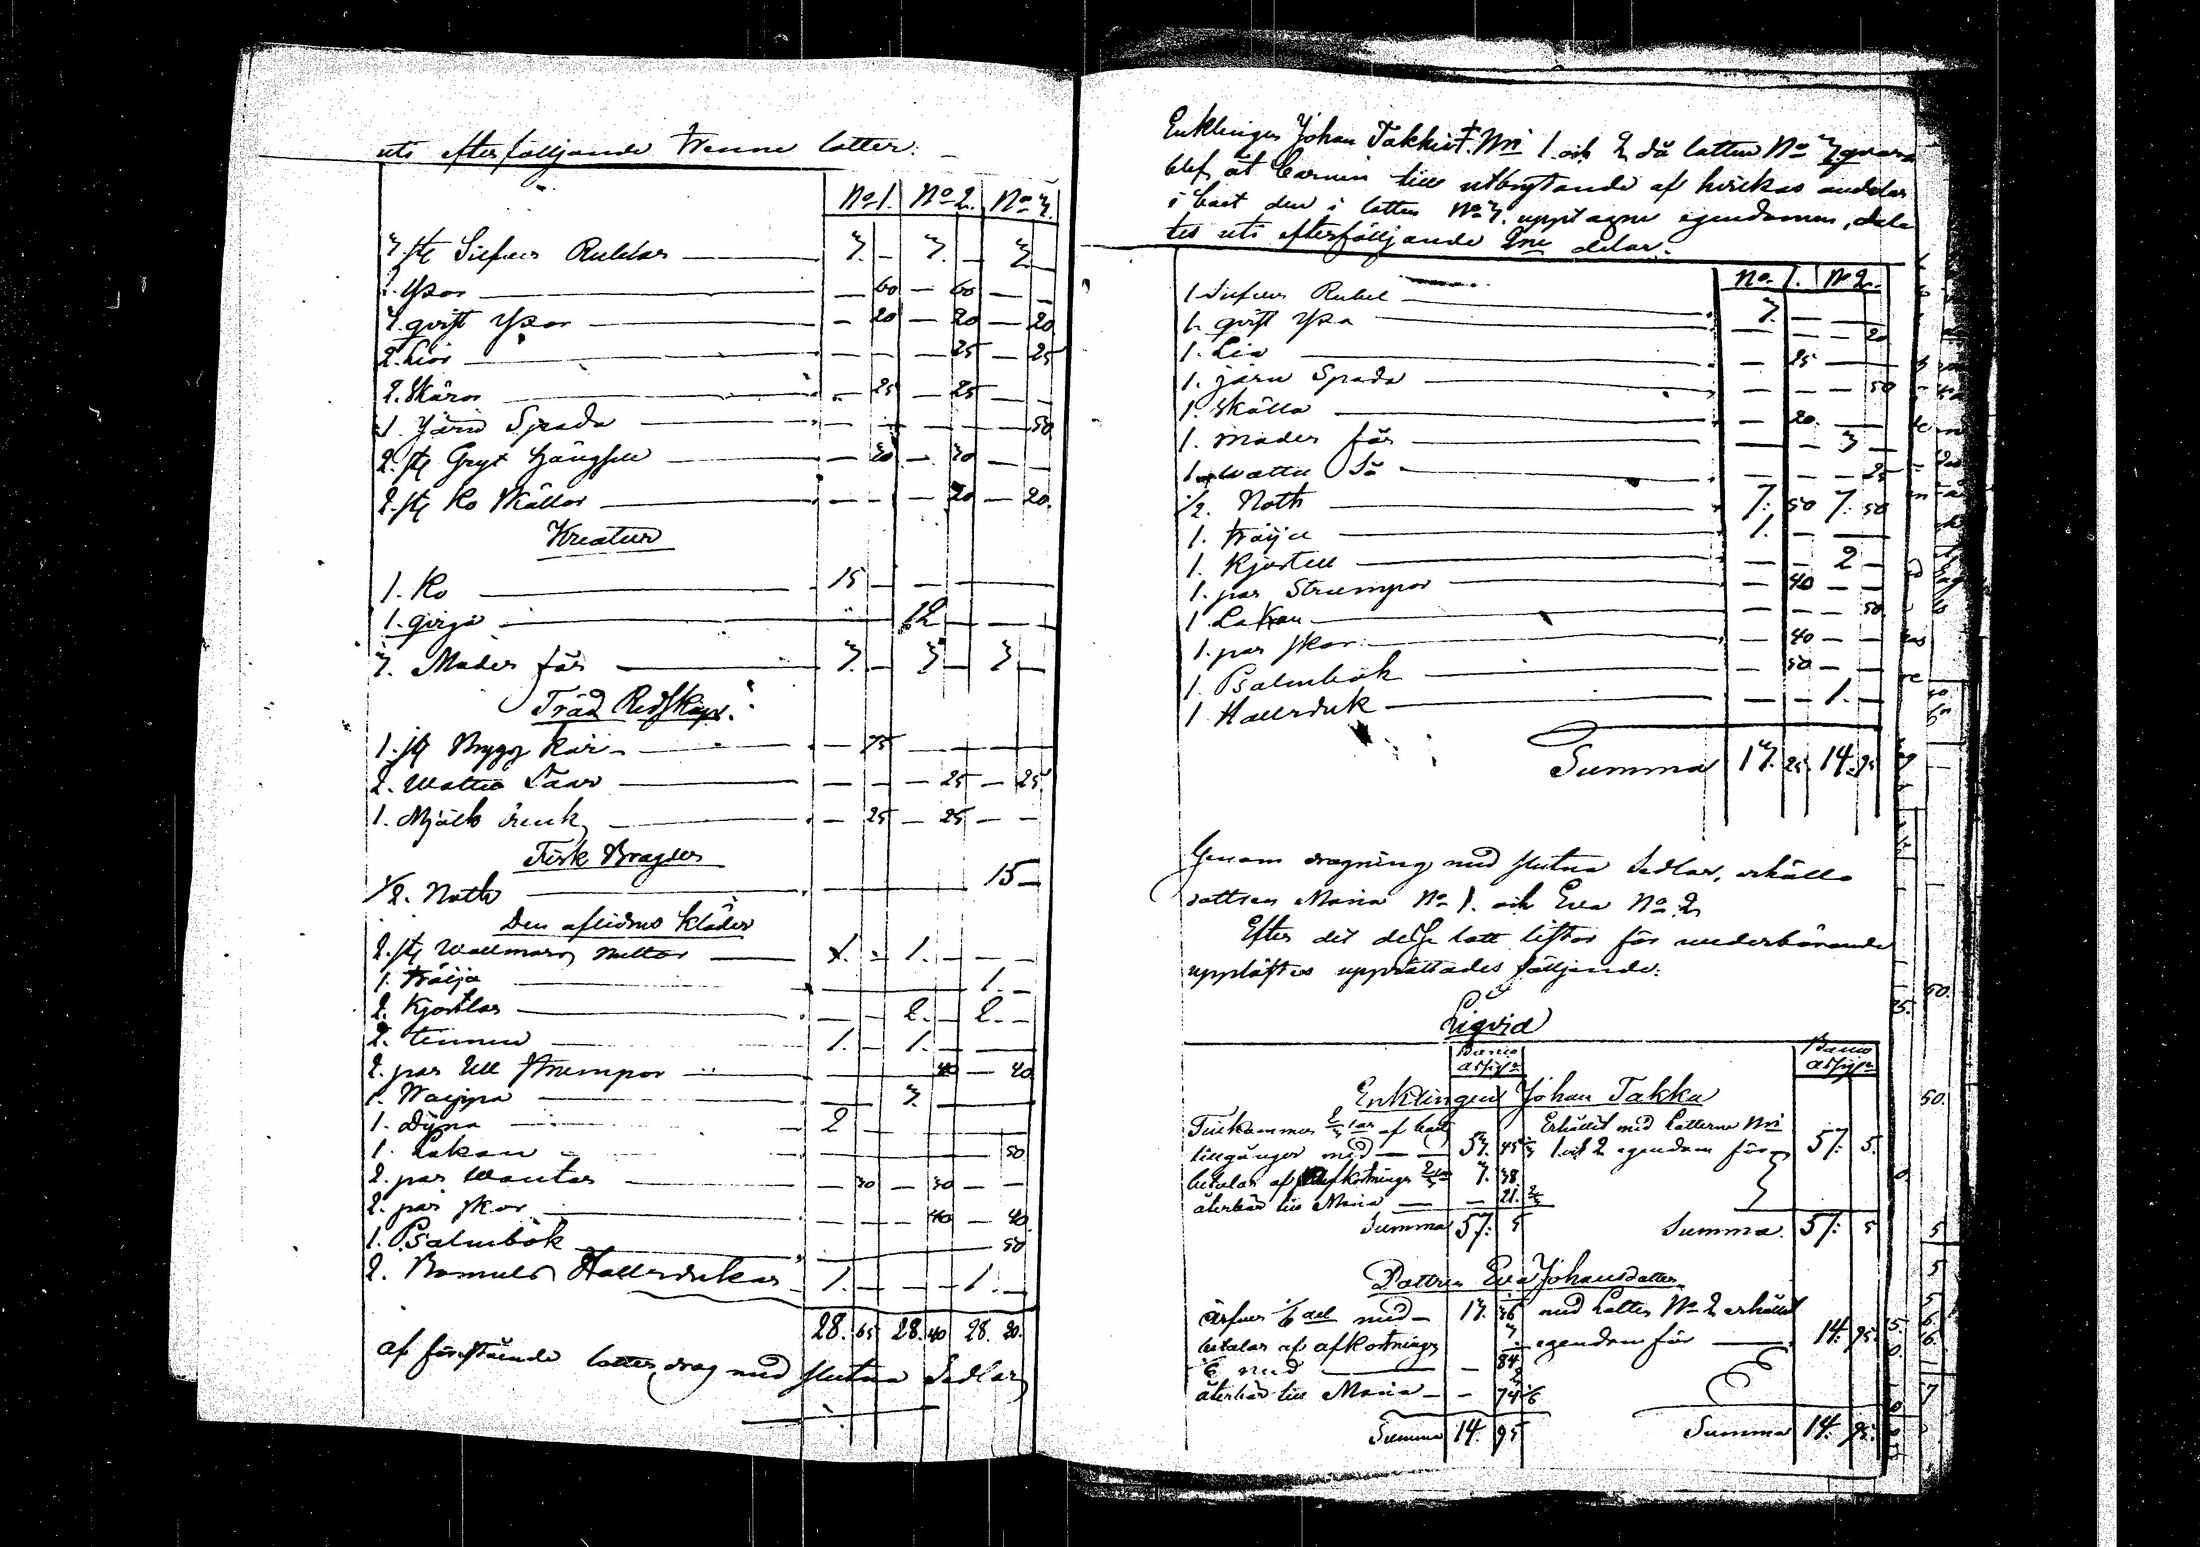 uti efterfölljande trenne lotter:
No 1. No 2. No 3.
3. st Silfver Rublar — 3. — 3. — 3 —
2. Yxor — 60 — 60 — —
3. qvist Yxor — 20 — 20 — 20
2. Liar — — — 25 — 25
2. Skäror — 25 — 25 — —
1. Järn Spada — — — — — 50
2. st Gryt hängslen — 30 — 30 — —
2. st Ko Skällor — — — 20 — 20.
Kreatur
1. Ko — 15 — — —
1. qviga — 12 — — —
3. Moder får — 3. — 3 — 3 —
Träd Redskap.
1. st Brygg Kar — 75 — — —
2. Watten Såar — — — 25 — 25.
1. Mjölk — 25 — 25 — —
Fisk Bragder
1/2. Noth — 15 —
Den aflidnes Kläder
2. st Wallmars — 1. — 1. — — —
1. tröija — 1. —
2. Kjortlar — — 2. — 2. —
2. — 1. — 1. — —
2. par Ull Strumpor — 40 — 40
1. — 3. —
1. Dyna — 2 —
1. Lakan — 50
2. par Wantar — 30 — 30 — —
2. par skor — — — 40 — 40.
1. Psalmbok — 50
2. Bomuls Hallsdukar — 1. — — — 1. —
28. 65 28. 40 28. 20.
af förestående lotter, drag med slutna Sedlar
Enklingen Johan Takku Nri 1 och 2 då lotten No 3 qvar
blef åt Barnen till utbrytande af hvilkas andelar
i boet den i lotten No 3. upptagne egendomen, dela
tes uti efterfölljande 2ne delar:
No. 1. No 2.
1 Silfver Rubel — 3. — — —
1. qvist Yxa — — — — 20
1. Lia — 25 — —
1. järn Spada — — — 50
1. skälla — 20. — —
1. moder får — — 3 —
1 watten Så — — — 25
1/2. Noth — 7: 50 7. 50
1. tröija — 1. — — —
1. Kjortell — — — 2 —
1. par Strumpor — 40 — —
1 Lakan — — — 50
1. par skor — 40 — —
1. Psalmbok — 50 — —
1 Hallsduk — — — 1. —
Summa 13. 25. 14. 95
Genom dragning med slutna Sedlar, erhölls
dottren Maria No 1. och Eva No 2
Efter det desse lott listor för vederbörande
uppläste upprättades fölljande:
Liqvid
Banco assign Banco assign
Enklingen Johan Takku
Tillkommer 2/3 lar af boets Erhållit med Lotterne Nri
tillgånger med — 53. 45 1/3 1 och 2 egendom för 57. 5.
betalar af afkortninger 2/3 3. 38
återbär till Maria — — 21. 2/3
Summa 57: 5 Summa. 57: 5
Dottren Eva Johansdotter
Ärfver 1/6 del med — 13. 36 med Lotten No 2 erhållit
betalar af afkortninger egendom för — 14. 95.
1/6 med — — 84
återbär till Maria — — 74 1/6
Summa 14. 95 Summa 14. 95.